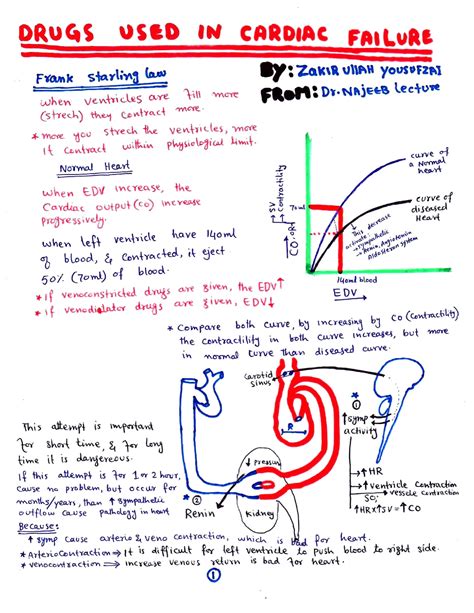 DRUGS USED IN CARDIAC FAILURE
BY: ZAKIR ULLAH YOUSUFZAI
FROM: Dr. NAJEEB Lecture
Frank Starling law
when ventricles are fill more
(strech) they contract more.
* more you strech the ventricles, more
it contract within physiological limit.
Normal Heart
when EDV increase, the
Cardiac output (co) increase
progressively.
when left ventricle have 140ml
of blood, & contracted, it eject
50% (70ml) of blood.
* If venoconstricted drugs are given, the EDV↑
* if venodilator drugs are given, EDV↓
curve of
a Normal
heart
curve of
diseased
Heart
70ml
CO OR SV
Contractility
This decrease
activate:
→ Sympathetic
→ Renin, Angiotensin
Aldosteron system
140ml blood
EDV
* Compare both curve, by increasing by CO (Contractility)
the contractility in both curve increases, but more
in normal curve than diseased curve.
carotid
sinus
R
* ①
↑symp
activity
→↑HR
→↑ventricle Contraction
→ vesscle contraction
SO,
↑HR×↑SV=↑CO
This attempt is important
for short time, & for long
time it is dangereous.
If this attempt is for 1 or 2 hour,
cause no problem, but occur for
months/years, than ↑sympathetic
outflow cause pathology in heart
Because:
↓ pressure
* ②
Renin
kidney
↑ symp cause arterio & veno contraction, which is bad for heart.
* Arterio Contraction ⇒ It is difficult for left ventricle to push blood to right side.
* venocontraction ⇒ increase venous return is bad for heart.
①